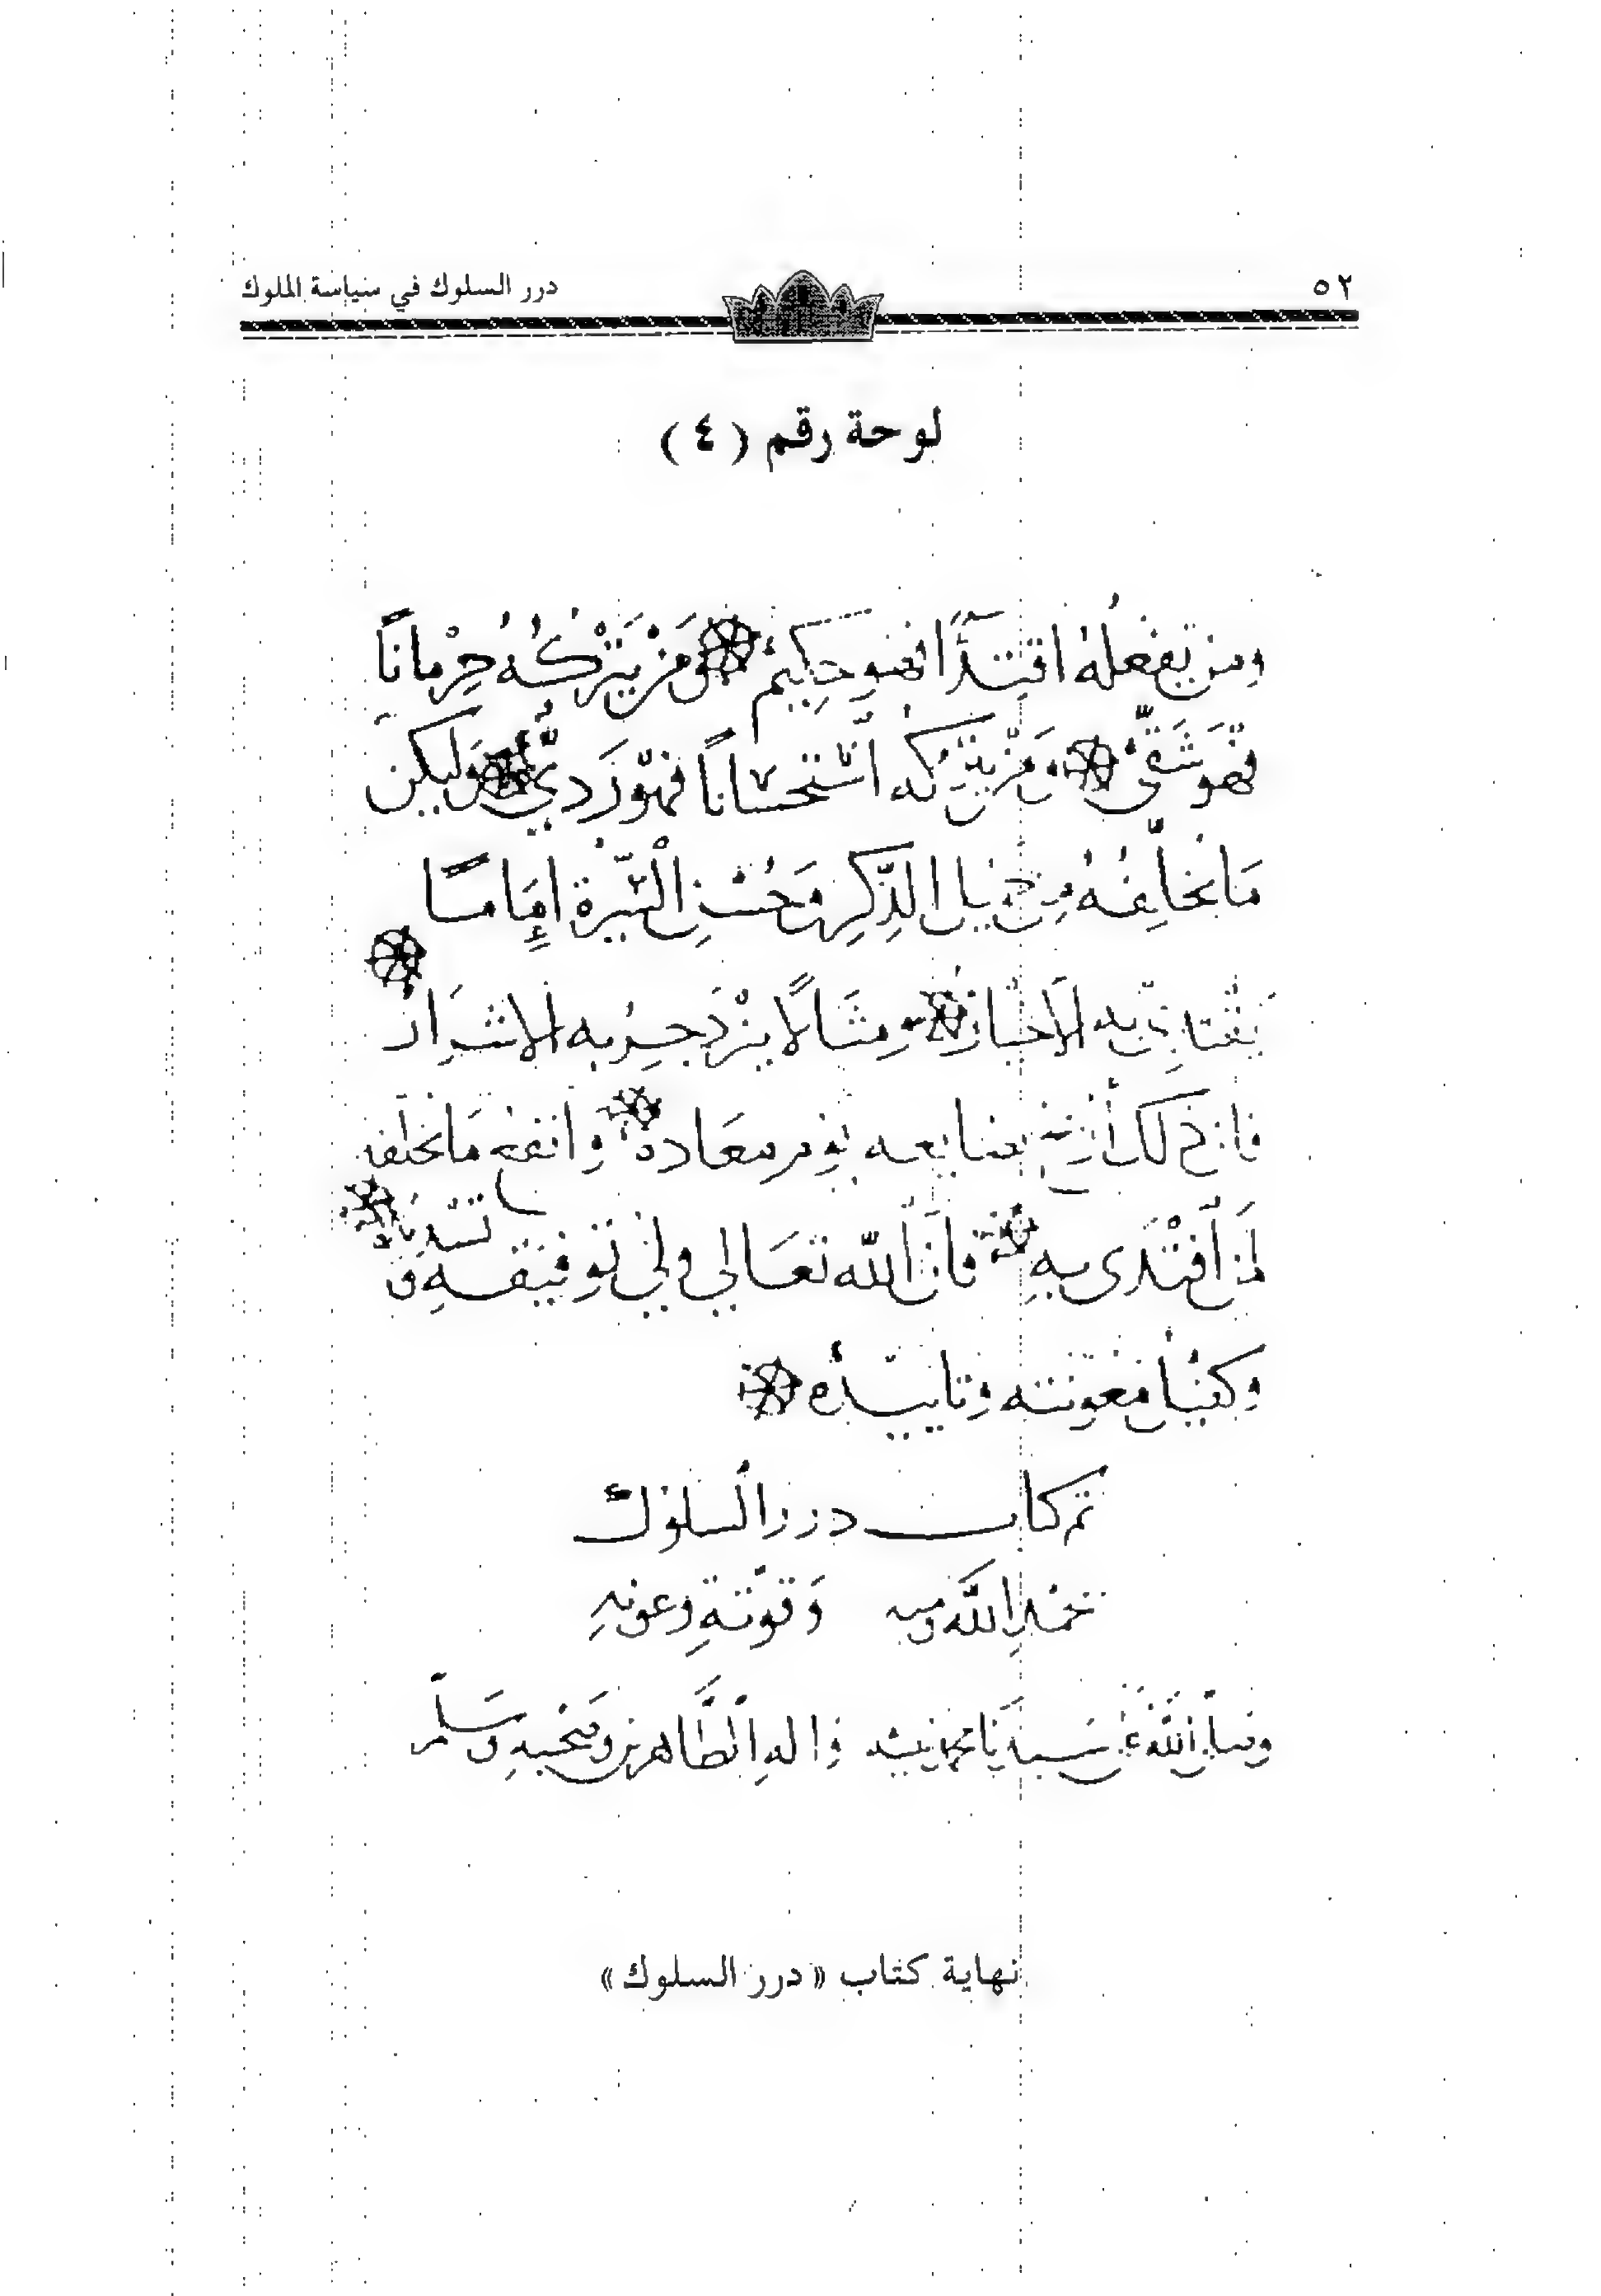 ٥٢
درر السلوك في سياسة الملوك
لوحة رقم (٤)
ومن يفعله اقتدآءً فهو حكيم ومن يتركه حرمانًا
فهو شقي ومن يتركه استحسانًا فهو ردي وليكن
ما يخلفه من جميل الذكر وحسن السيرة إمامًا
يقتدي به الأخيار ومثالًا يزدجر به الاشرار
فان ذلك بضايعه يوم معاده وانفع ما يخلفه
لمن اقتدى به فان الله تعالى ولي توفيقه و تسديده
وكفيل معونته وتاييده
تم كتاب درر السلوك
بحمد الله ومنه وقوته وعونه
وصلى الله على سيدنا محمد نبيه واله الطاهرين وصحبه وسلم
نهاية كتاب «درر السلوك»